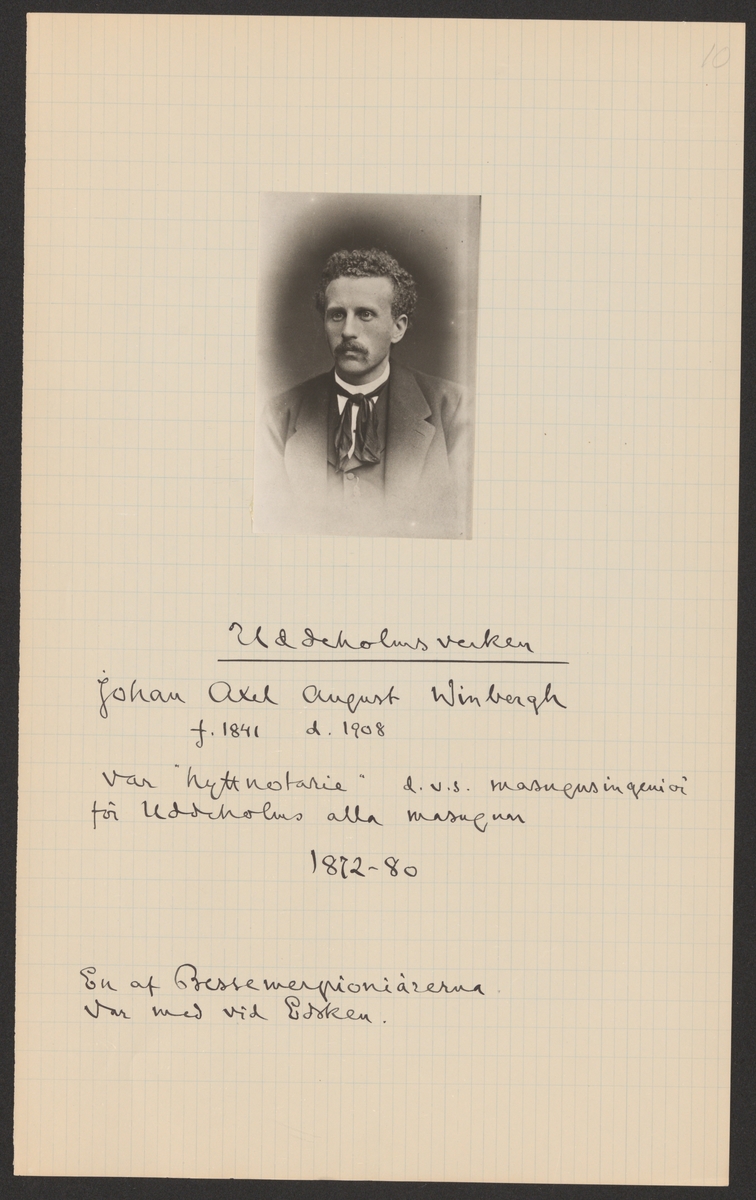 10
Uddeholmsverken
Johan Axel August Winbergh
f. 1841 d. 1908
var "hyttnotarie" d.v.s. masugnsingeniör
för Uddeholms alla masugnar
1872-80
En af Bessemerpioniärerna
var med vid Edsken.